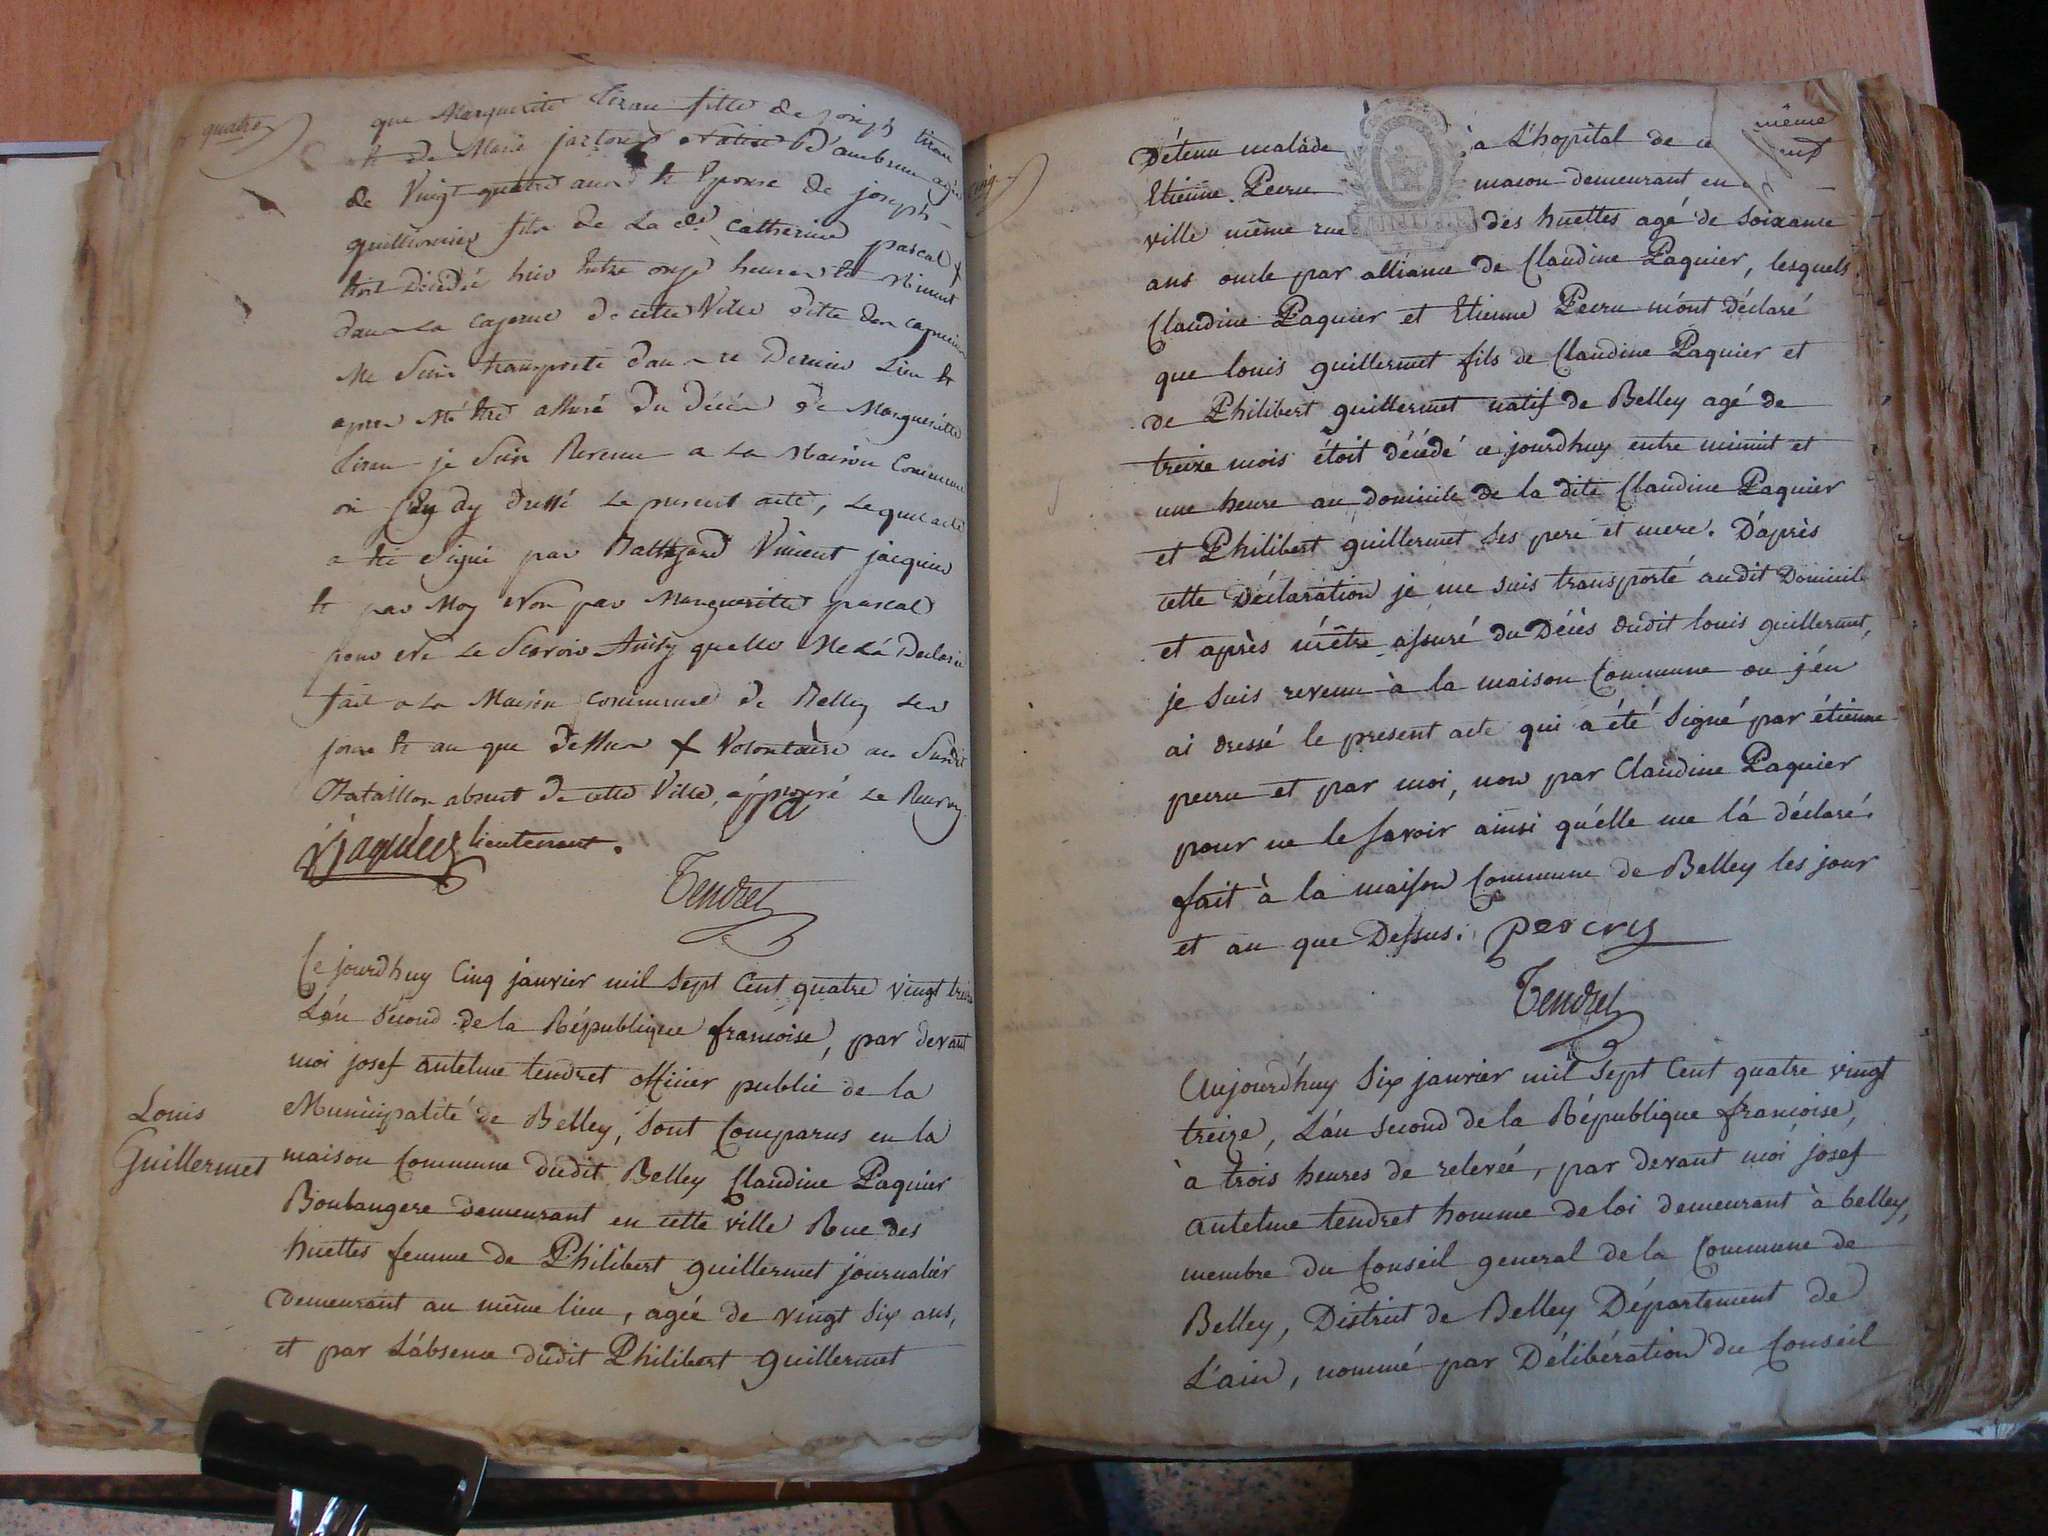 quatre
que Marguerite tiran fille de joseph tiran
et de Marie Native d'ambrun agée
de Vingt quatre ans et Epouse de joseph
fils de La de Catherine pascal +
étoit décédée hier Entre onze heures et Minuit
dans La caserne de cette Ville ditte des capucins
Me Suis transporté dans ce Dernier Lieu et
apres M'être assuré du décès de Marguerite
tiran je Suis Revenu a La Maison Commune
où j'ay dressé Le present acte, Lequel acte
a été Signé par Vincent jacquier
et par Moy Non par Marguerite pascal
pour ne Le Scavoir Ainsy quelle Me L'a Declaré
fait a La Maison commune de Belley Les
jour et an que dessus + Volontaire au Susdit
Bataillon absent de cette Ville, approuvé Le Renvoy
lieutenant.
Tendret
Ce jourd'huy Cinq janvier mil Sept Cent quatre vingt treize
L'án Sécond de la République françoise, par devant
moi josef antelme tendret officier public de la
Municipalité de Belley, Sont Comparus en la
Louis
Guillermet
maison Commune dudit Belley Claudine Paquier
Boulangere demeurant en cette ville Rue des
huettes femme de Philibert guillermet journalier
demeurant au même lieu, agée de vingt Six ans,
et par L'absence dudit Philibert guillermet
cinq
Détenu malade à L'hopital de ce même
Etienne Pecru macon demeurant en
ville même rue des huettes agé de Soixante
ans oncle par alliance de Claudine Paquier, lesquels
Claudine Paquier et Etienne Pecru m'ont Déclaré
que louis guillermet fils de Claudine Paquier et
de Philibert guillermet natif de Belley agé de
treize mois étoit décédé ce jourdhuy entre minuit et
une heure au domicile de la dite Claudine Paquier
et Philibert guillermet Ses pere et mere. D'après
cette Déclaration je me suis transporté audit Domicile
et après m'être assuré du Décès dudit louis guillermet,
je Suis revenu à la maison Commune ou j'en
ai dressé le present acte qui a été Signé par étienne
pecru et par moi, non par Claudine Paquier
pour ne le Savoir ainsi qu'elle me l'á déclaré.
fait à la maison Commune de Belley les jour
et an que Dessus.
Tendret
Aujourd'huy Six janvier mil Sept Cent quatre vingt
treize, L'án Second de la République françoise,
à trois heures de relevée, par devant moi josef
antelme tendret homme de loi demeurant à belley,
membre du Conseil general de la Commune de
Belley, District de Belley Département de
L'ain, nommé par Délibération du Conseil